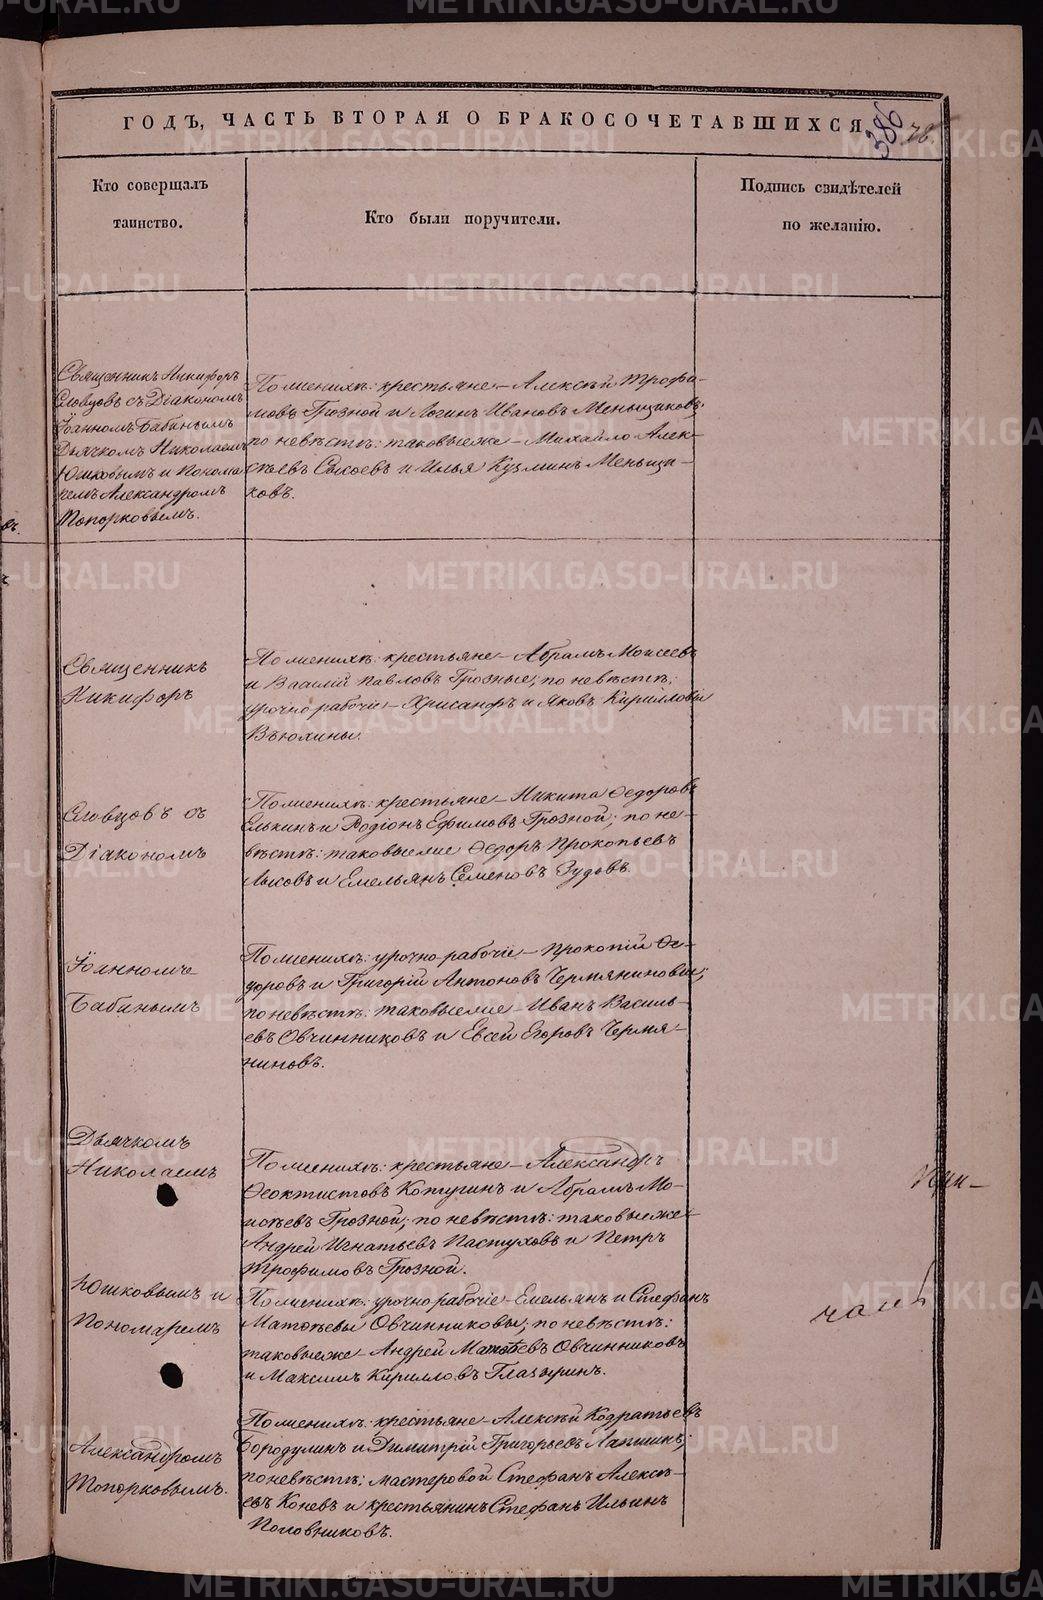 ГОДЪ, ЧАСТЬ ВТОРАЯ О БРАКОСОЧЕТАВШИХСЯ
386
78.
Кто соверщалъ
таинство.
Кто были поручители.
Подпись свидѣтелей
по желанію.
Священникъ Никифоръ
Словцовъ съ Діакономъ
Іоанномъ Бабинымъ
Дьячкомъ Николаемъ
Юшковымъ и Понома
ремъ Александромъ
Топорковымъ.
По женихѣ: крестьяне – Алексѣй Трофи-
мовъ Грозной и Логинъ Ивановъ Меньщиковъ;
по невѣстѣ: таковыеже – Михайло Алек-
сѣевъ Сысоевъ и Илья Кузминъ Меньщи-
ковъ.
Священникъ
Никифоръ
По женихѣ: крестьяне – Абрамъ Моисеевъ
и Василій Павловъ Грозные; по невѣстѣ:
урочно-рабочіе – Хрисанфъ и Яковъ Кирилловы
Вьюхины.
Словцовъ съ
Діакономъ
По женихѣ: крестьяне – Никита Ѳедоровъ
Елькинъ и Родіонъ Ефимовъ Грозной; по не-
вѣстѣ: таковыеже Ѳедоръ Прокопьевъ
Лысовъ и Емельянъ Семеновъ Зудовъ.
Іоанномъ
Бабинымъ
По женихѣ: урочно-рабочіе – Прокопій Ѳе-
доровъ и Григорій Антоновъ Чермяниновы;
по невѣстѣ: таковыеже – Иванъ Василь-
евъ Овчинниковъ и Евсей Егоровъ Чермя-
ниновъ.
Дьячкомъ
Николаемъ
По женихѣ: крестьяне – Александръ
Ѳеоктистовъ Копугинъ и Абрамъ Мо-
исѣевъ Грозной; по невѣстѣ: таковыеже –
Андрей Игнатьевъ Пастуховъ и Петръ
Трофимовъ Грозной.
При-
Юшковымъ и
Пономаремъ
По женихѣ: урочно-рабочіе – Емельянъ и Стефанъ
Матѳѣевы Овчинниковы; по невѣстѣ:
таковыеже – Андрей Матѳѣевъ Овчинниковъ
и Максимъ Кирилловъ Глазыринъ.
Александромъ
Топорковымъ.
По женихѣ: крестьяне – Алексѣй Кодратьевъ
Бородулинъ и Димитрій Григорьевъ Лапшинъ;
по невѣстѣ: мастеровой Стефанъ Алексѣ-
евъ Коневъ и крестьянинъ Стефанъ Ильинъ
Половниковъ.
METRIKI.GASO-URAL.RU